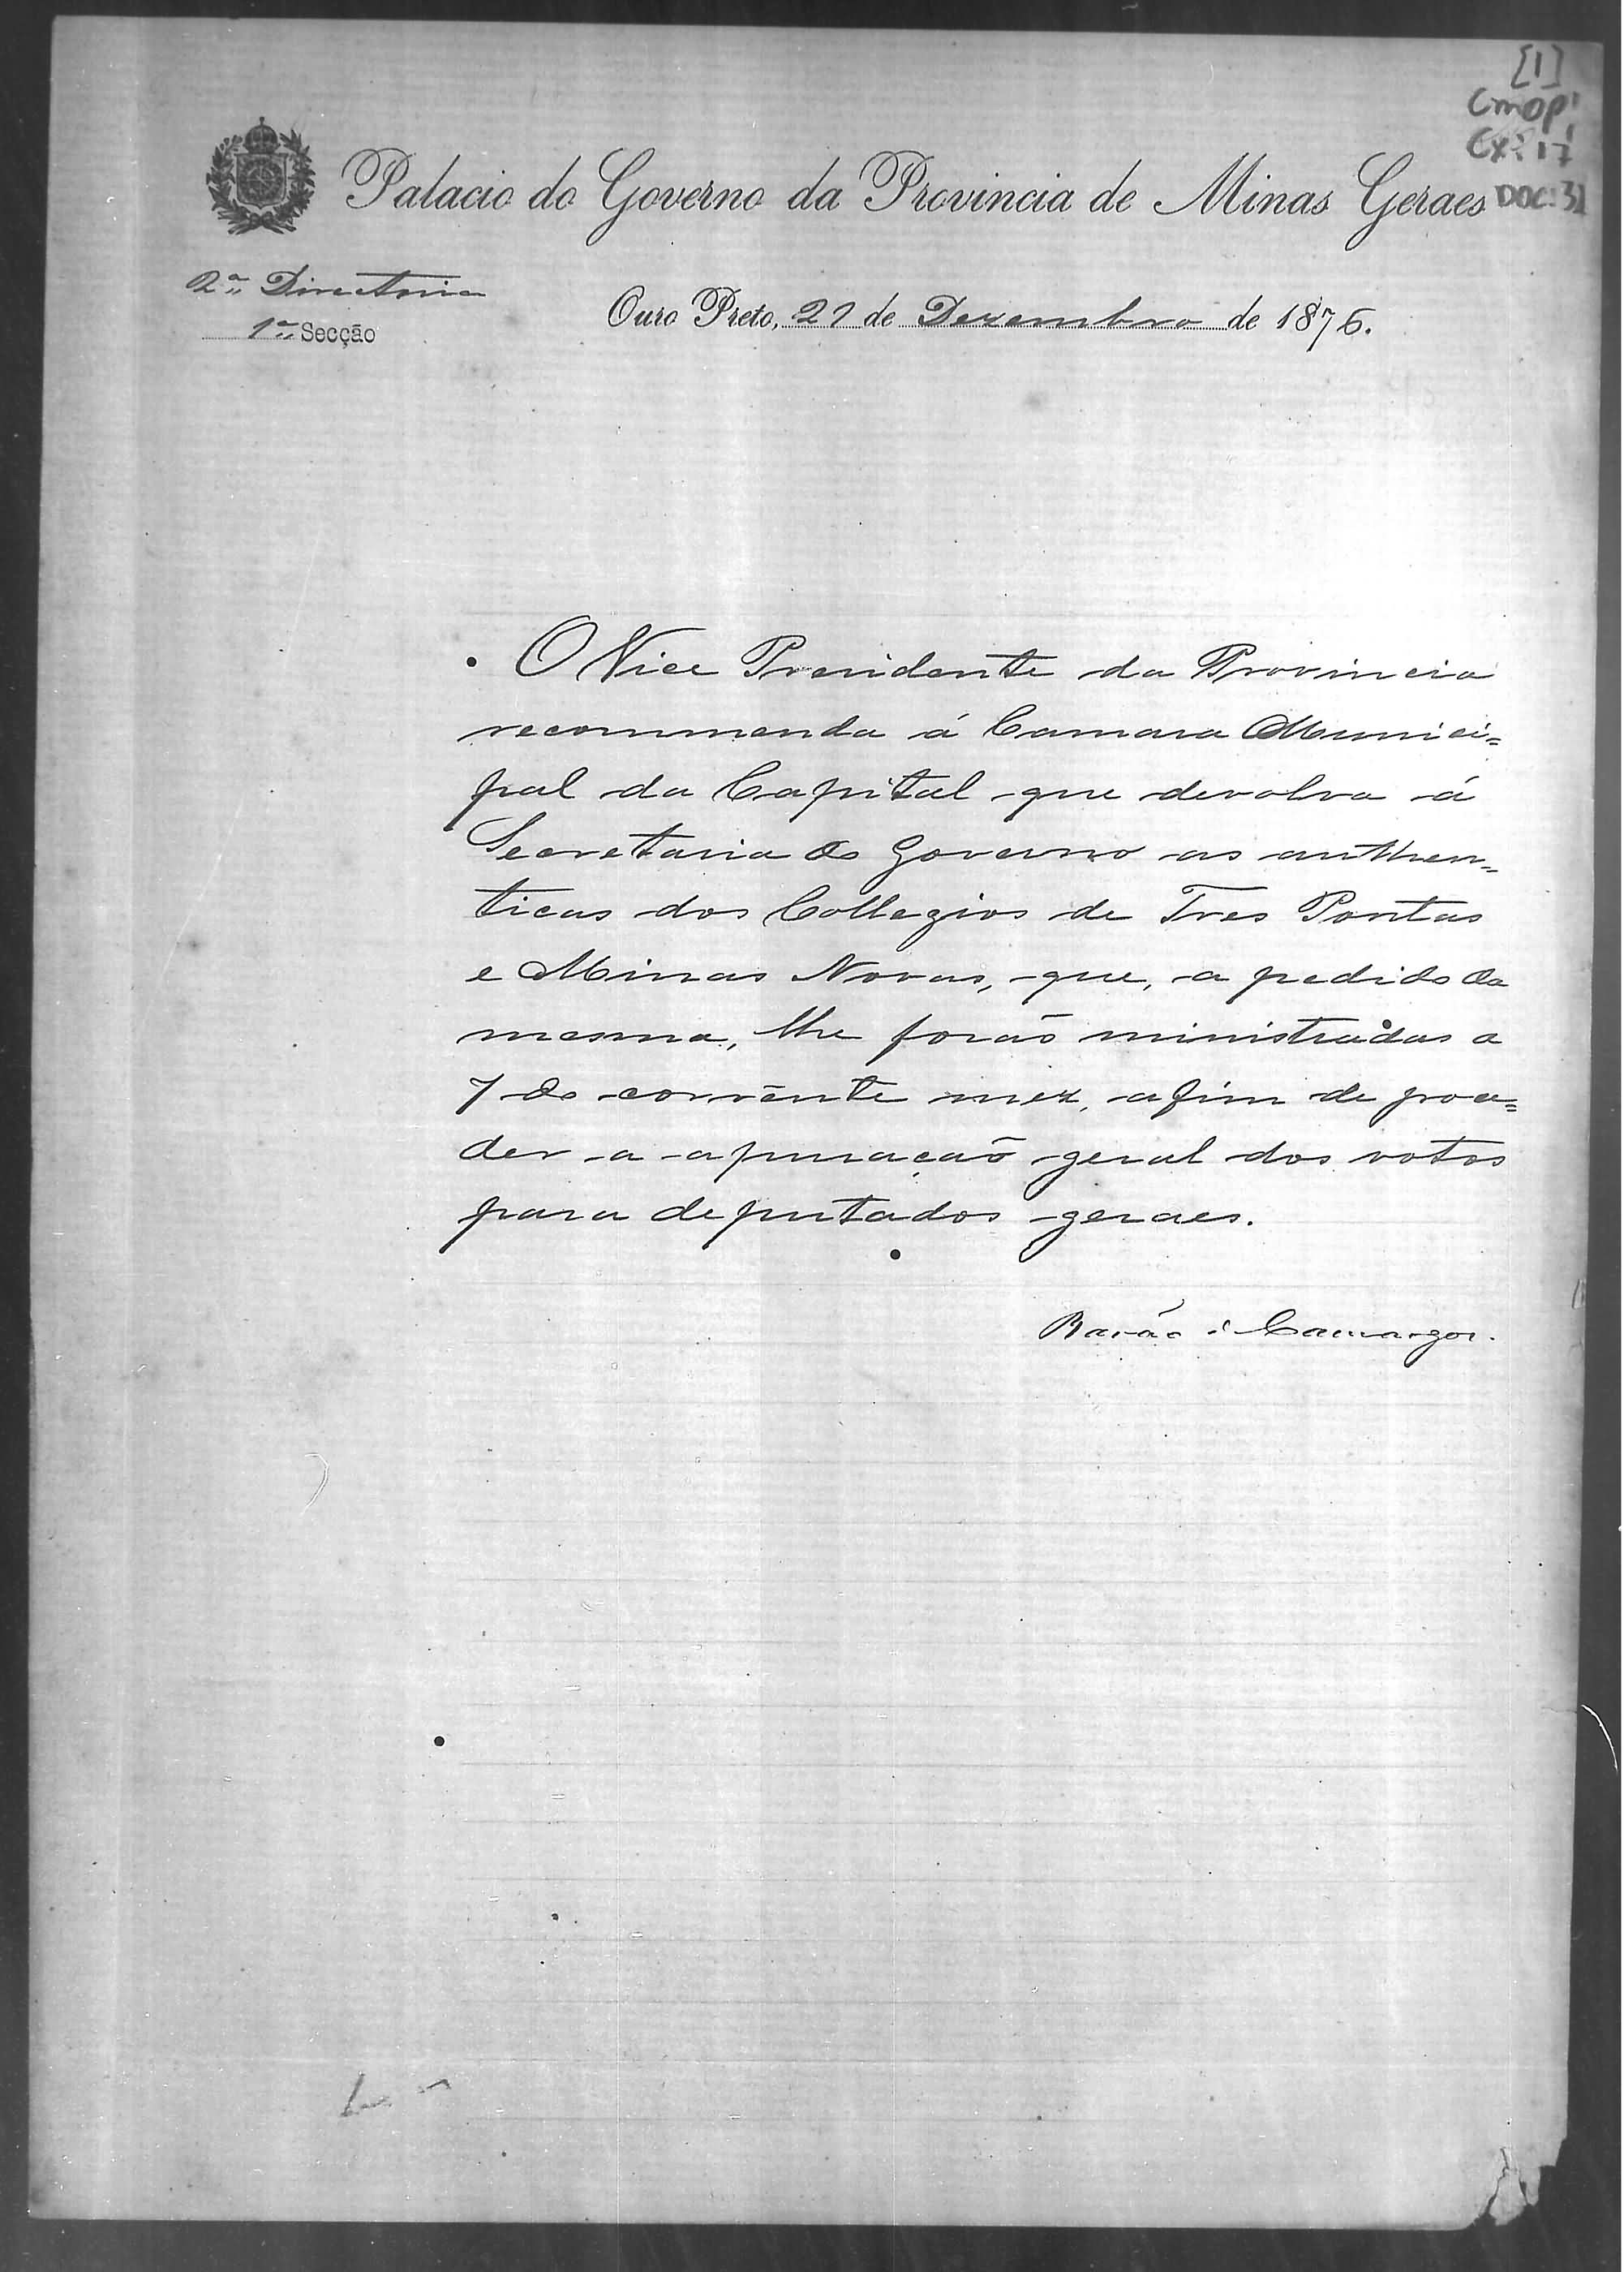 [1]
CMOP
Cx: 17
DOC: 31
Palacio do Governo da Provincia de Minas Geraes
2ª Directoria
1ª Secção
Ouro Preto, 21 de Dezembro de 1876.
O Vice Presidente da Provincia
recommenda á Camara Munici=
pal da Capital que devolva á
Secretaria do Governo as authen=
ticas dos Collegios de Tres Pontas
e Minas Novas, que, a pedido da
mesma, lhe forão ministradas a
7 do corrente mez, afim de proce=
der a apuração geral dos votos
para deputados geraes.
Barão de Camargos.